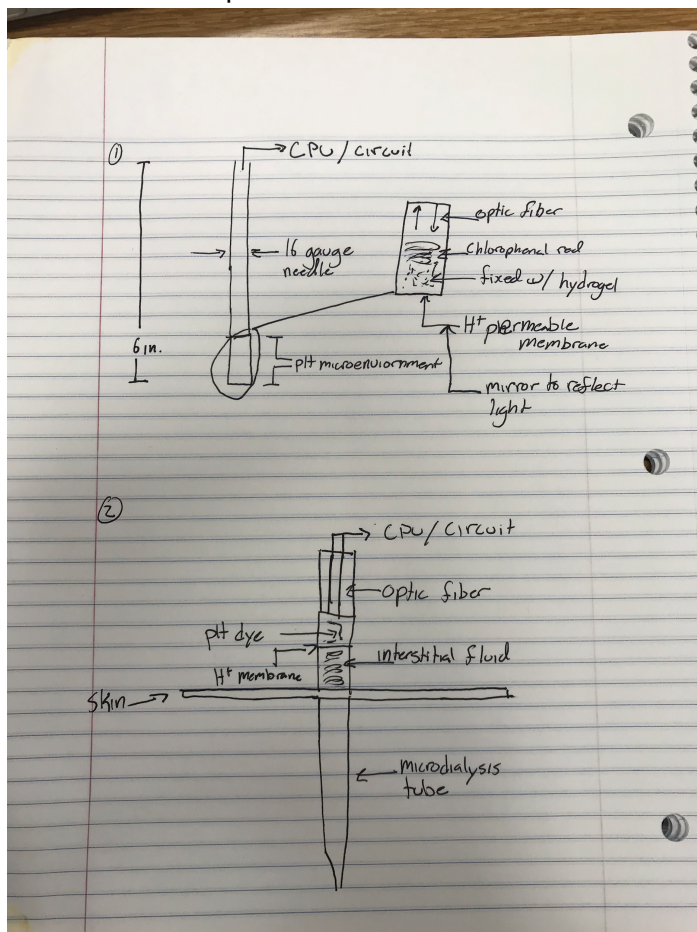 ①
CPU/circuit
16 gauge
needle
6 in.
pH microenviornment
optic fiber
Chlorophenal red
fixed w/ hydrogel
H+ permeable
membrane
mirror to reflect
light
②
CPU/circuit
optic fiber
pH dye
H+ membrane
interstitial fluid
Skin
microdialysis
tube